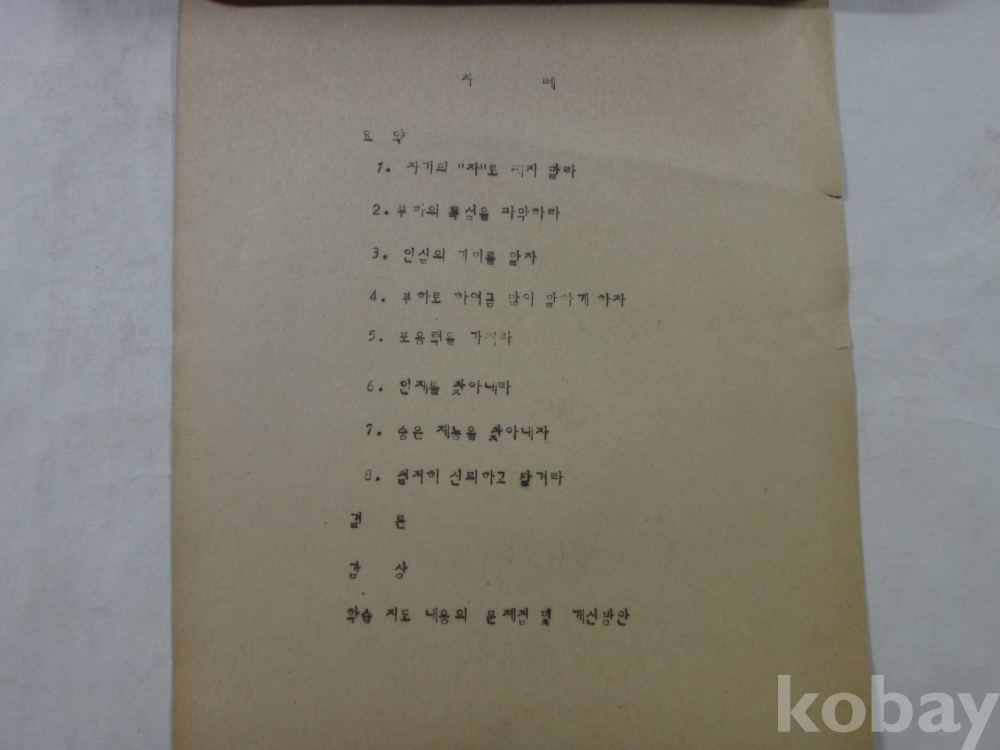 차 례
요 약
1. 자기의 "자"로 재지 말라
2. 부하의 특성을 파악하라
3. 인심의 기미를 알자
4. 부하로 하여금 많이 말하게 하자
5. 포용력을 가져라
6. 인재를 찾아내라
7. 숨은 재능을 찾아내자
8. 철저히 신뢰하고 맡겨라
결 론
감 상
학습 지도 내용의 문제점 및 개선방안
kobay